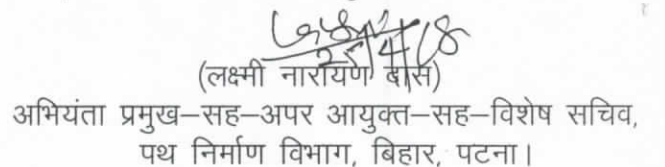 25/4/18
(लक्ष्मी नारायण दास)
अभियंता प्रमुख–सह–अपर आयुक्त–सह–विशेष सचिव,
पथ निर्माण विभाग, बिहार, पटना।